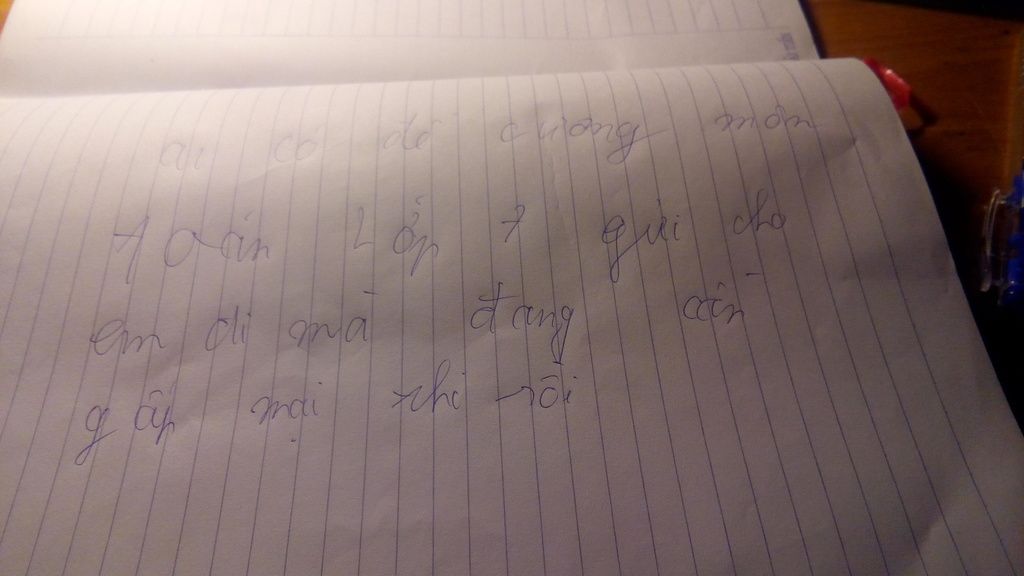 ai có đề cương môn
toán lớp 7 gửi cho
em đi mà đang cần
gấp mai thi rồi